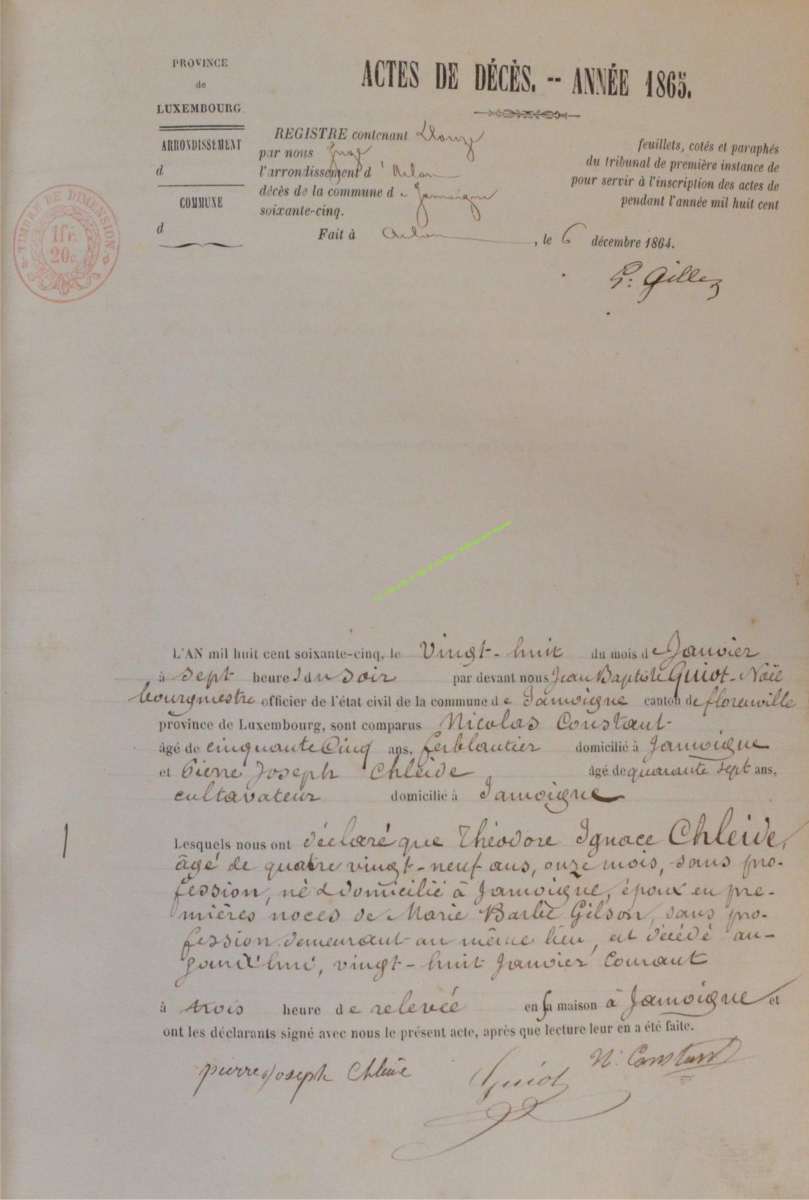 PROVINCE
de
LUXEMBOURG.
ARRONDISSEMENT
d
COMMUNE
d
TIMBRE DE DIMENSION
1fr.
20c.
ACTES DE DÉCÈS. -- ANNÉE 1865.
REGISTRE contenant Douze feuillets, cotés et paraphés
par nous du tribunal de première instance de
l'arrondissement d'Arlon pour servir à l'inscription des actes de
décès de la commune de Jamoigne pendant l'année mil huit cent
soixante-cinq.
Fait à Arlon, le 6 décembre 1864.
L'AN mil huit cent soixante-cinq, le Vingt-huit du mois de Janvier
à sept heures du soir par devant nous Jean Baptiste Guiot-Noël
bourgmestre officier de l'état civil de la commune de Jamoigne canton de florenville
province de Luxembourg, sont comparus Nicolas Constant
âgé de cinquante Cinq ans, ferblantier domicilié à Jamoigne
et Pierre Joseph Chleide âgé de quarante sept ans,
cultavateur domicilié à Jamoigne
1
Lesquels nous ont déclaré que Théodore Ignace Chleide,
âgé de quatre vingt-neuf ans, onze mois, sans pro-
fession, né & domicilié à Jamoigne, époux en pre-
mières noces de Marie Barbe Gilson, sans pro-
fession demeurant au même lieu, est décédé au-
jourd'hui, vingt-huit Janvier Courant
à trois heure de relevée en sa maison à Jamoigne et
ont les déclarants signé avec nous le présent acte, après que lecture leur en a été faite.
pierre joseph Chleide
Guiot
N. Constant